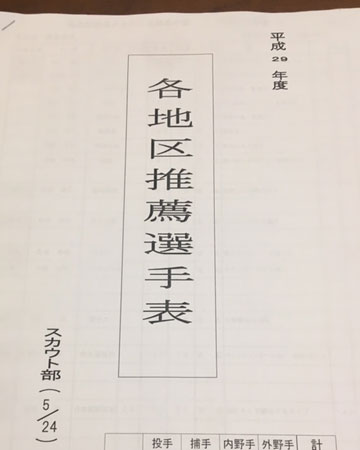 平成29年度
各地区推薦選手表
スカウト部(5/24)
投手 捕手 内野手 外野手 計